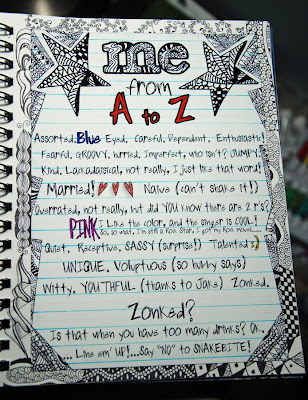 me
from
A to Z
Assorted. Blue Eyed. Careful. Dependent. Enthusiastic!
Fearful. GROOVY. hurried. Imperfect, who isn't? JUMPY.
Kind. Lackadaisical, not really, I just like that word!
Married! Naive (can't shake it!)
Overrated, not really, but did YOU know there are 2 r's?
PINK I Like the color, and the singer is COOL!
So, so what, I'm still a Roc Star, I got my Roc moves....
Quiet. Receptive. SASSY (surprise!) Talented :)
UNIQUE. Voluptuous (so hubby says)
Witty. YOUTHFUL (thanks to Jake) Zonked.
Zonked?
Is that when you have too many drinks? OK..
... Line em' UP!...Say "NO" to SNAKEBITE!